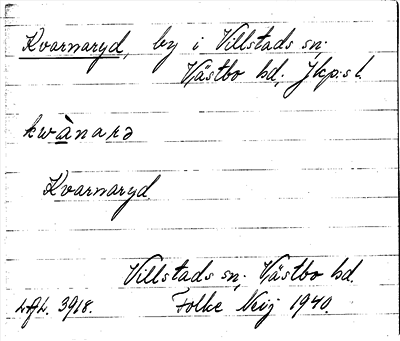 Kvarnaryd, by i Villstads sn.
Västbo hd, Jkp:s l.
kwànarə
Kvarnaryd
Villstads sn, Västbo hd.
3918. Folke 1940.